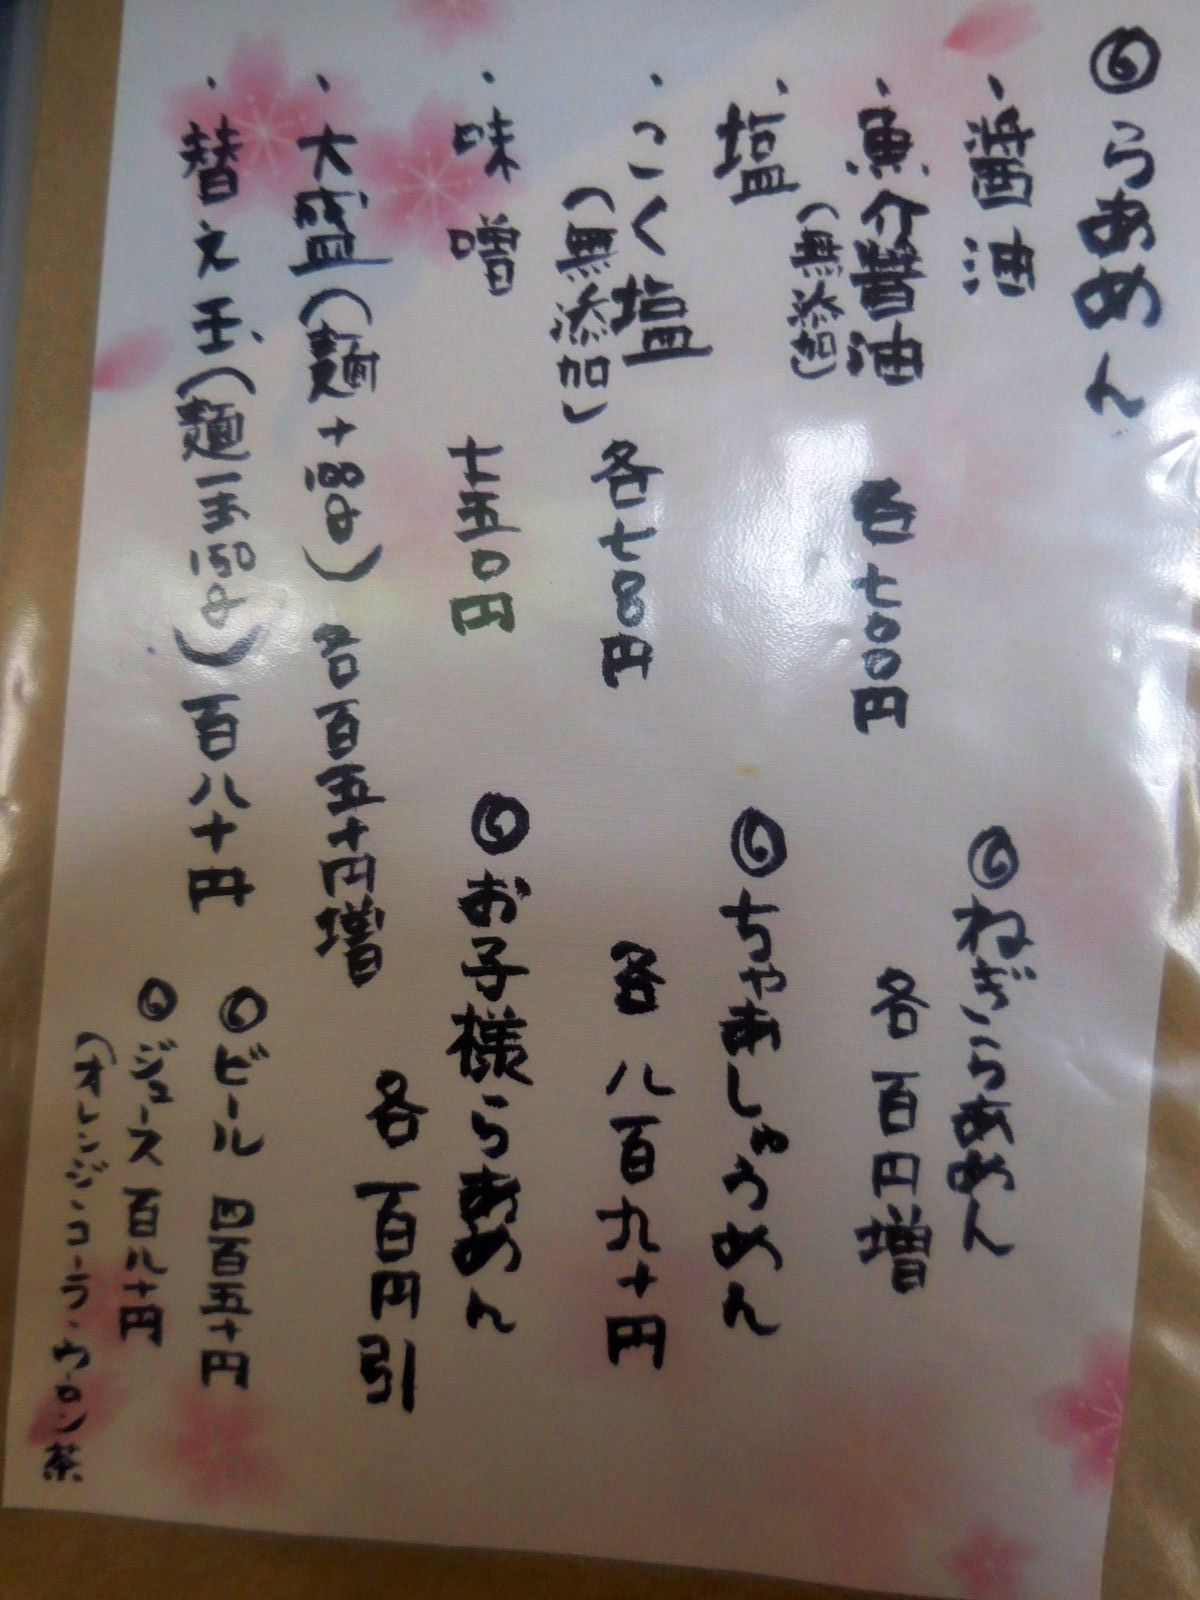 ◎らあめん
・醤油
・魚介醤油
(無添加)
各七〇〇円
・塩
・こく塩
(無添加)
各七五〇円
・味噌
七五〇円
・大盛(麺+100g)各百五十円増
・替え玉(麺一玉150g)百八十円
◎ねぎらあめん
各百円増
◎ちゃあしゅうめん
各八百九十円
◎お子様らあめん
各百円引
◎ビール 四百五十円
◎ジュース 百八十円
(オレンジ・コーラ・ウーロン茶